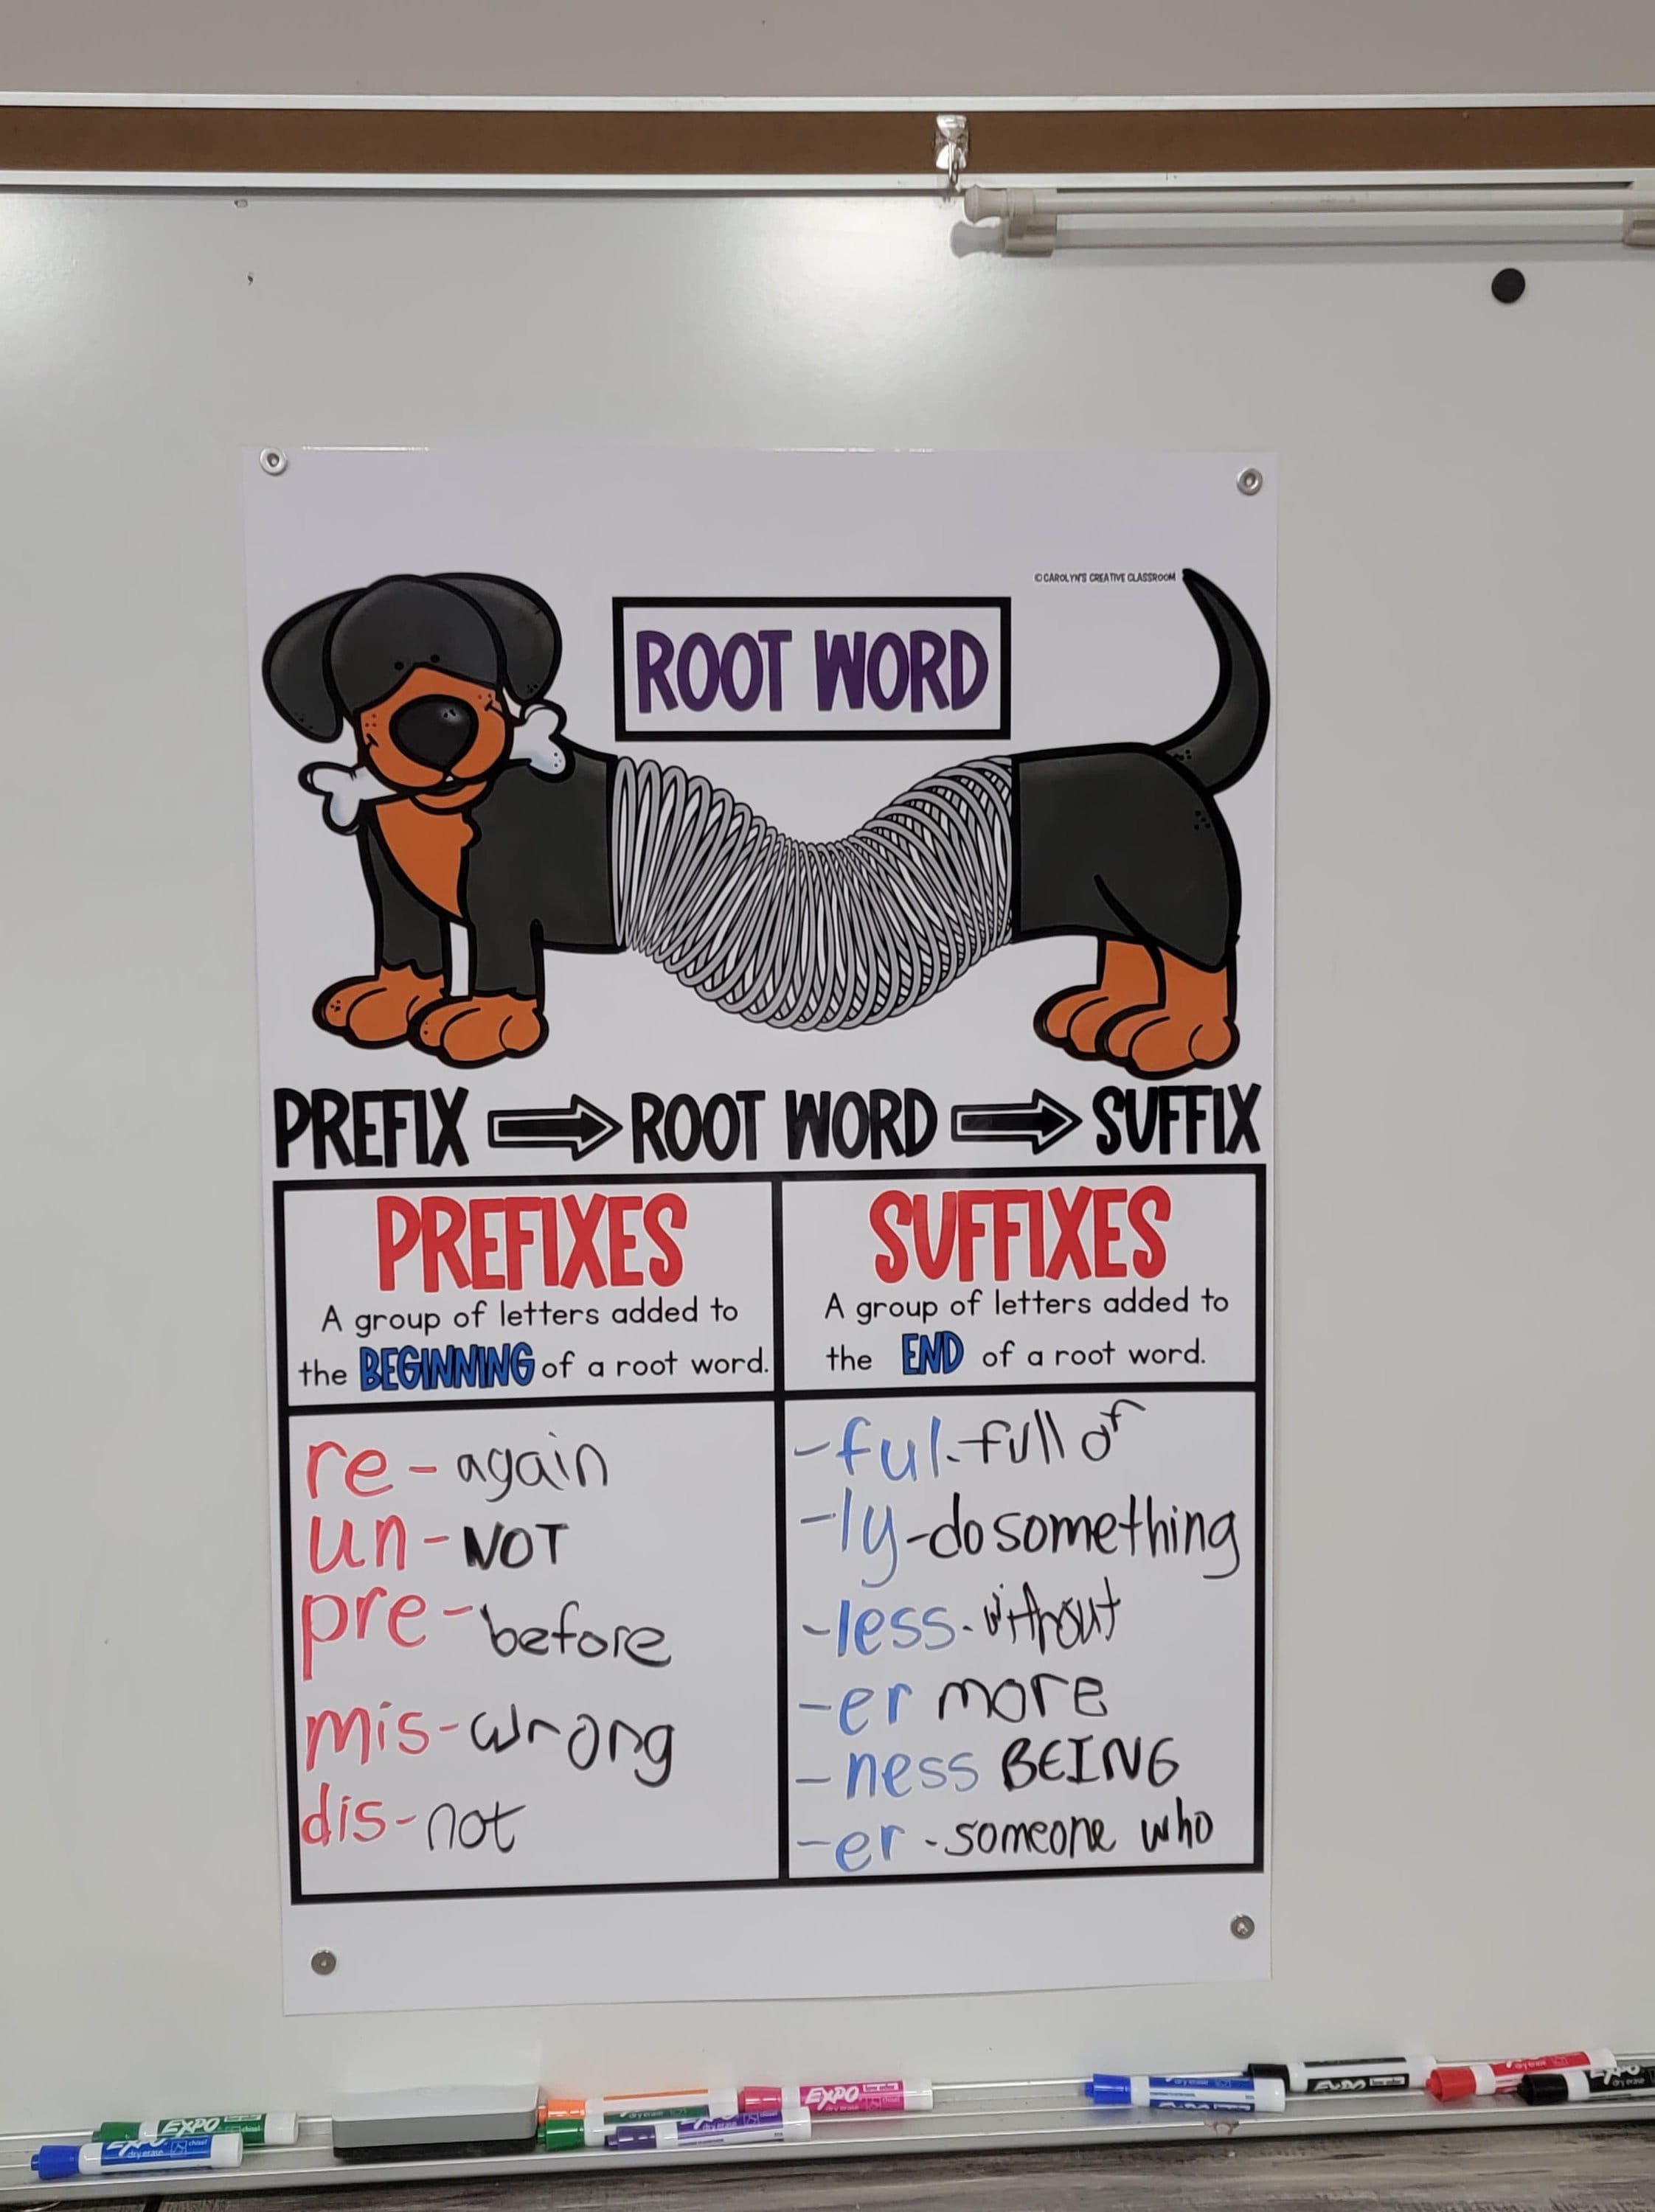 © CAROLYN'S CREATIVE CLASSROOM
ROOT WORD
PREFIX ROOT WORD SUFFIX
PREFIXES
A group of letters added to
the BEGINNING of a root word.
re - again
un - NOT
pre - before
mis - wrong
dis - not
SUFFIXES
A group of letters added to
the END of a root word.
-ful - full of
-ly - do something
-less - without
-er more
-ness BEING
-er - someone who
EXPO
EXPO
dry erase
chisel
dry erase
EXPO
dry erase
EXPO
dry erase
EXPO
dry erase
EXPO